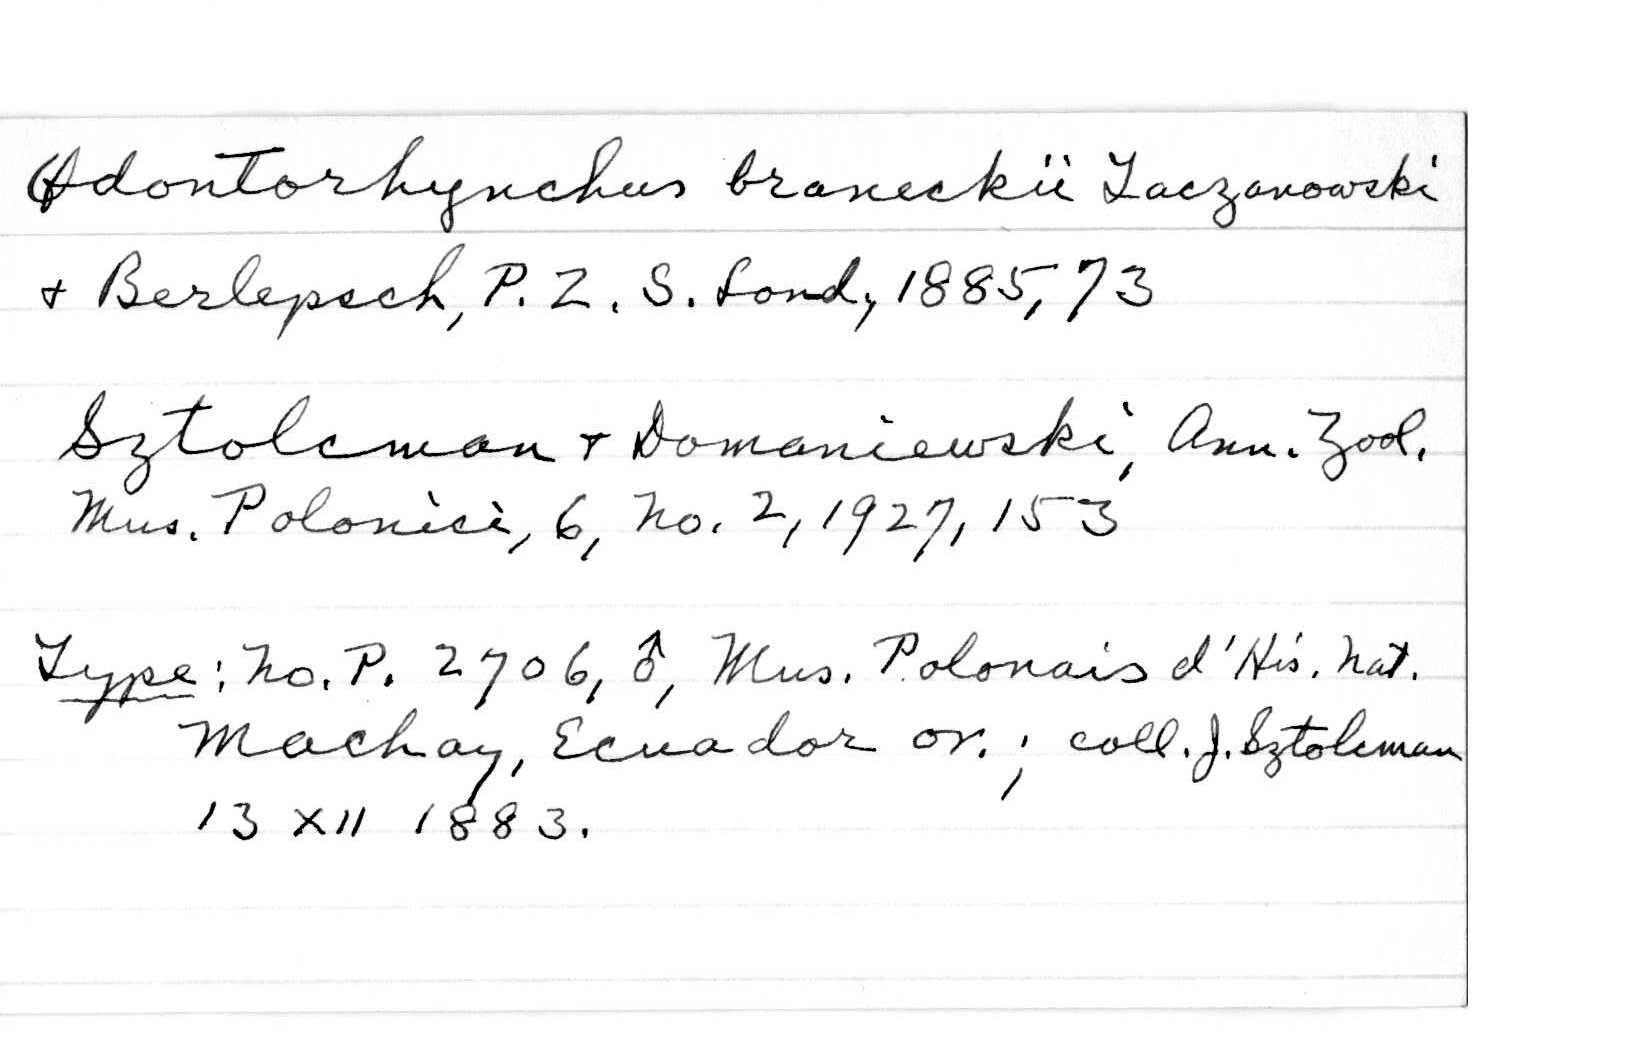 Odontorhynchus braneckii Taczanowski
+ Berlepsch, P. Z. S. Lond, 1885, 73
Sztolcman + Domaniewski, Ann. Zool.
Mus. Polonici, 6, No. 2, 1927, 153
Type: No. P. 2706, ♂, Mus. Polonais d'His. Nat.
Machay, Ecuador or.; coll. J. Sztolcman
13 XII 1883.